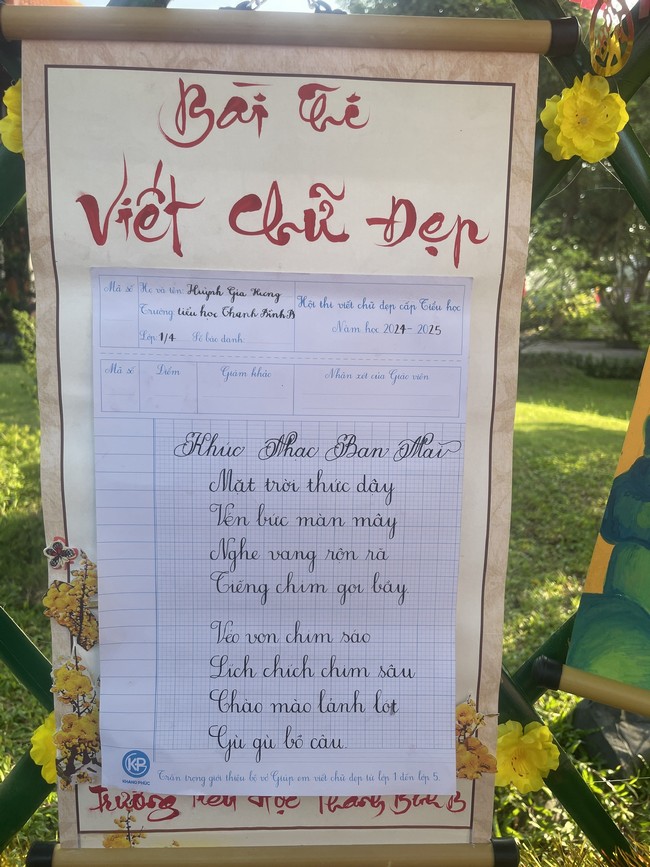 Bài Thi
Viết Chữ Đẹp
Mã số
Họ và tên Huỳnh Gia Hương
Trường tiểu học Thạnh Bình B
Lớp 1/4 Số báo danh:
Hội thi viết chữ đẹp cấp Tiểu học
Năm học 2024 - 2025
Mã số
Điểm
Giám khảo
Nhận xét của Giáo viên
Khúc Nhạc Ban Mai
Mặt trời thức dậy
Vén bức màn mây
Nghe vang rộn rã
Tiếng chim gọi bầy.
Véo von chim sáo
Lích chích chim sâu
Chào mào lảnh lót
Gù gù bồ câu.
KP
KHANG PHÚC
Trân trọng giới thiệu bộ vở Giúp em viết chữ đẹp từ lớp 1 đến lớp 5.
Trường Tiểu Học Thạnh Bình B